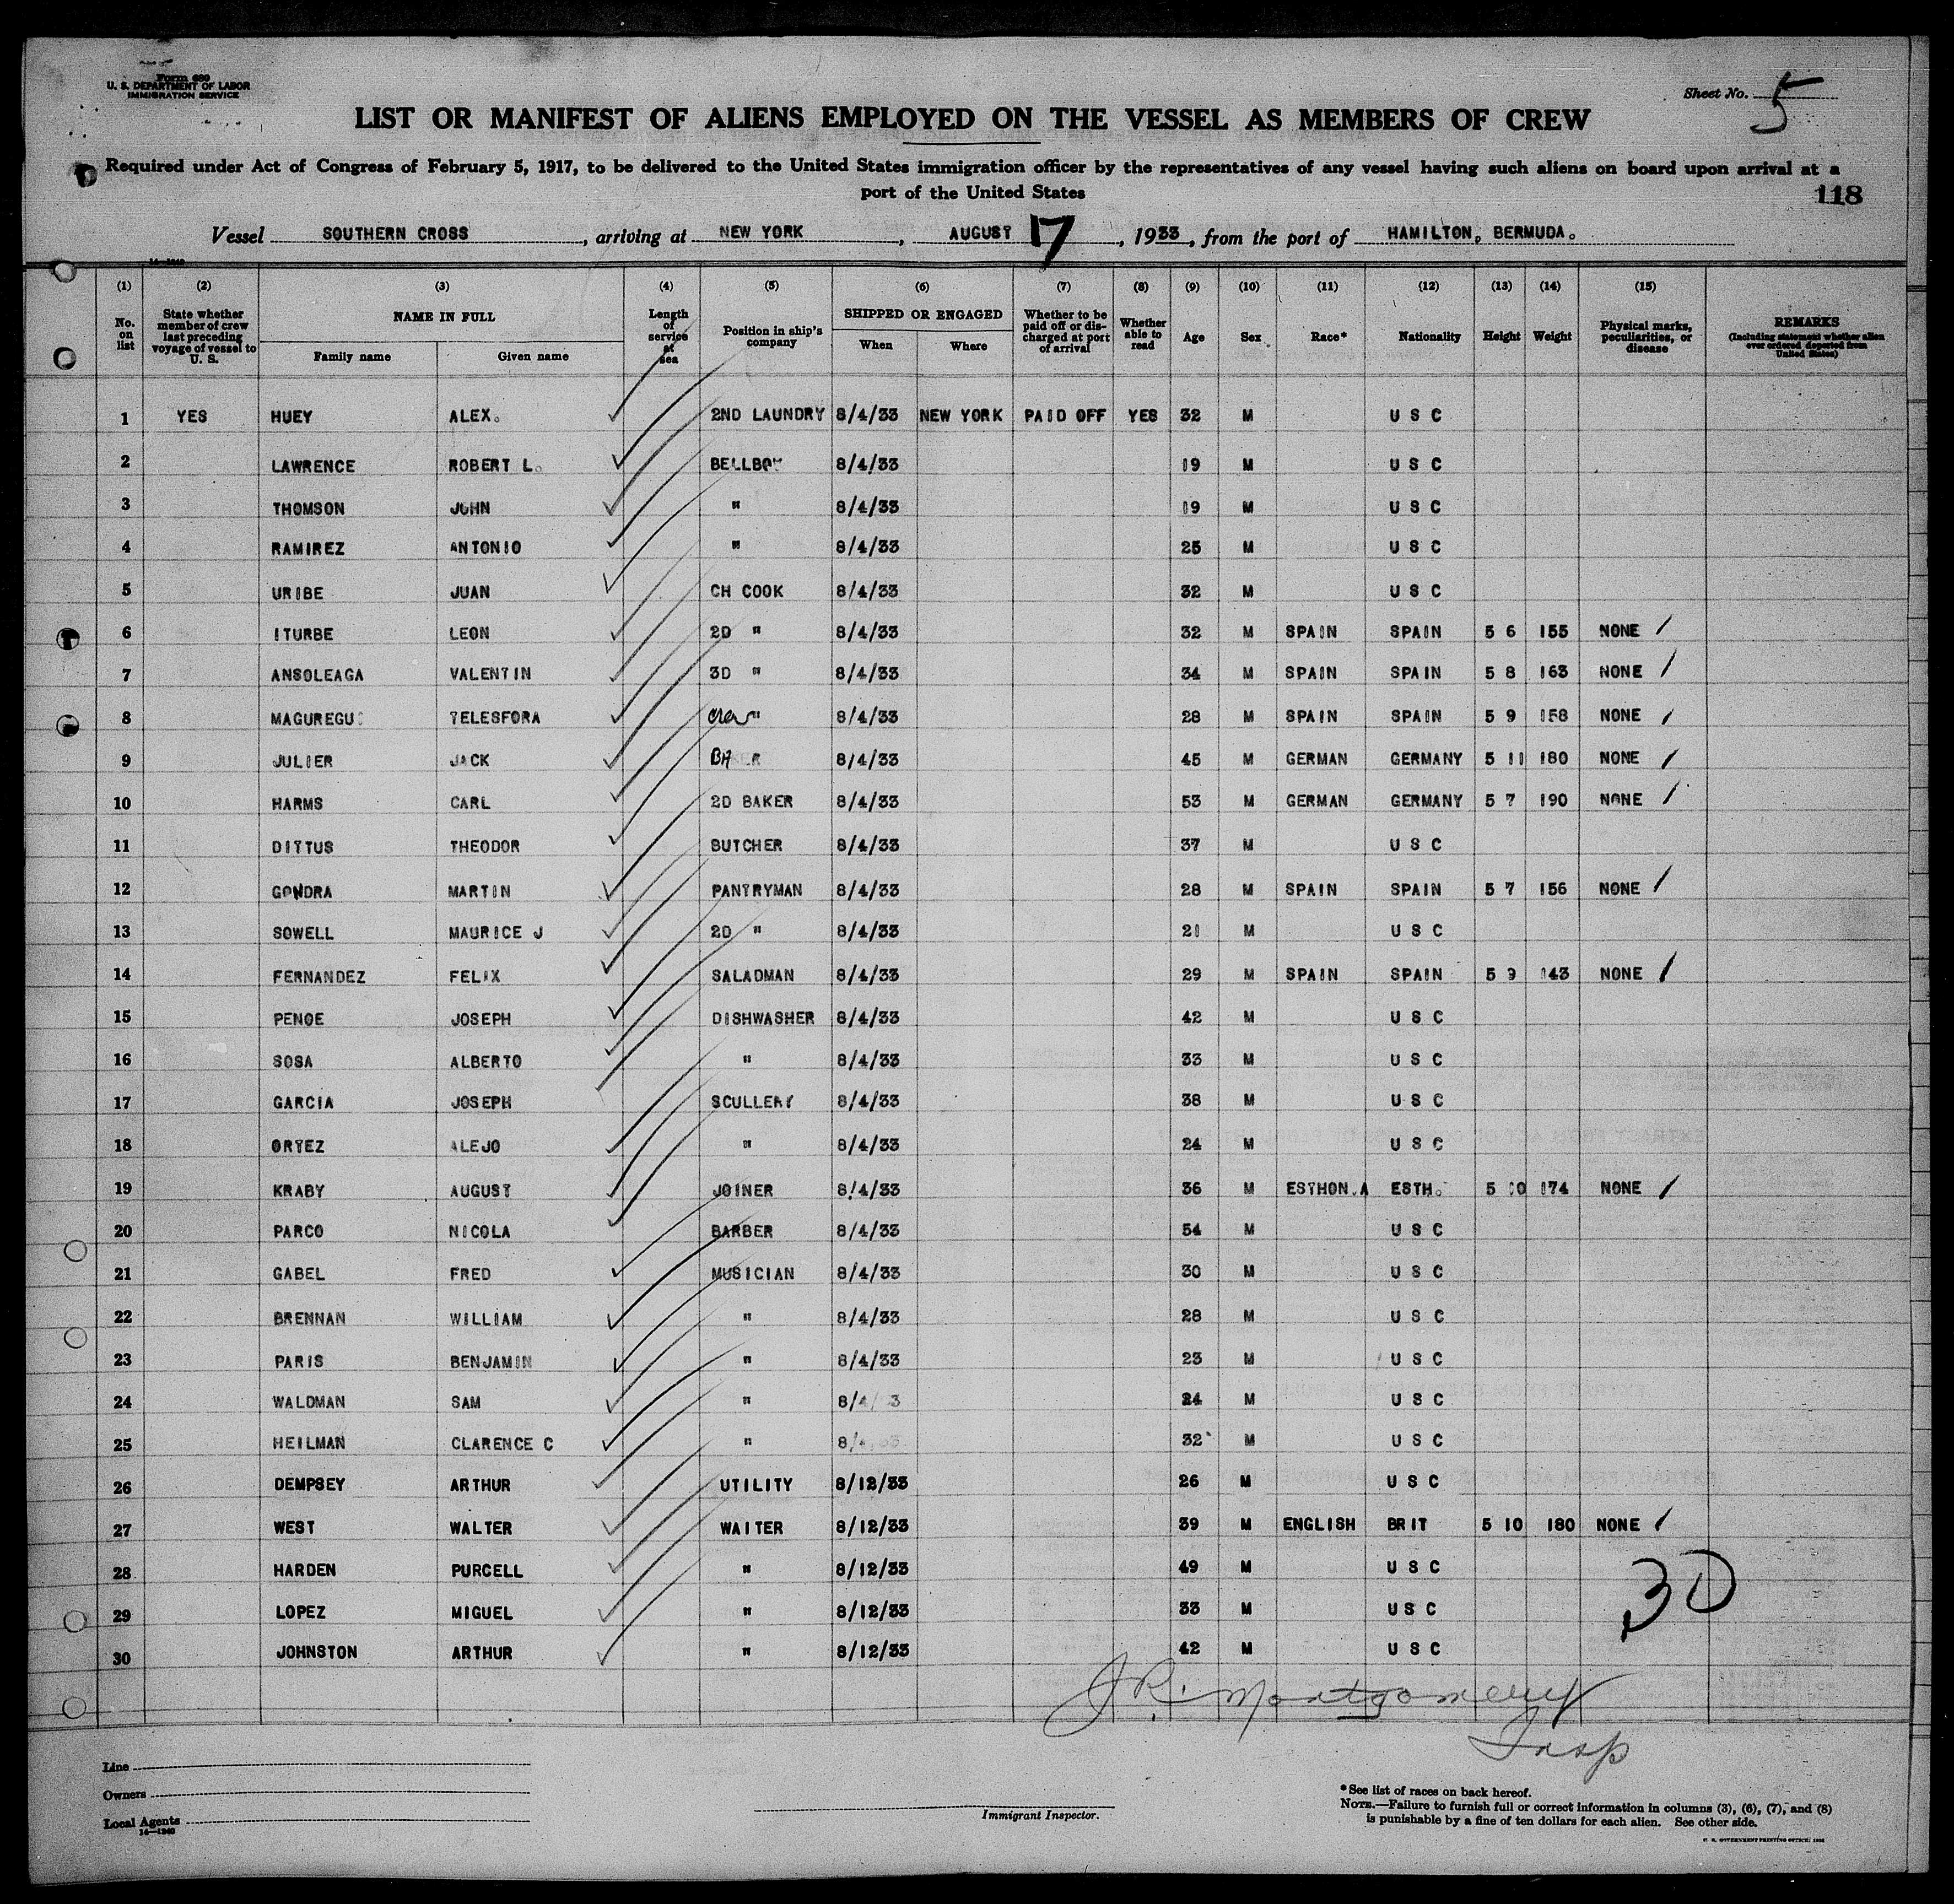 Form 680
U. S. DEPARTMENT OF LABOR
IMMIGRATION SERVICE
Sheet No. 5
LIST OR MANIFEST OF ALIENS EMPLOYED ON THE VESSEL AS MEMBERS OF CREW
Required under Act of Congress of February 5, 1917, to be delivered to the United States immigration officer by the representatives of any vessel having such aliens on board upon arrival at a
port of the United States
118
Vessel SOUTHERN CROSS, arriving at NEW YORK, AUGUST 17, 1933, from the port of HAMILTON, BERMUDA.
14—1240
(1) (2) (3) (4) (5) (6) (7) (8) (9) (10) (11) (12) (13) (14) (15)
No. on list
State whether member of crew last preceding voyage of vessel to U. S.
NAME IN FULL
Family name
Given name
Length of service at sea
Position in ship's company
SHIPPED OR ENGAGED
When
Where
Whether to be paid off or discharged at port of arrival
Whether able to read
Age
Sex
Race*
Nationality
Height
Weight
Physical marks, peculiarities, or disease
REMARKS
(Including statement whether alien ever ordered deported from United States)
1 YES HUEY ALEX. 2ND LAUNDRY 8/4/33 NEW YORK PAID OFF YES 32 M U S C
2 LAWRENCE ROBERT L. BELLBOY 8/4/33 19 M U S C
3 THOMSON JOHN " 8/4/33 19 M U S C
4 RAMIREZ ANTONIO " 8/4/33 25 M U S C
5 URIBE JUAN CH COOK 8/4/33 32 M U S C
6 ITURBE LEON 2D " 8/4/33 32 M SPAIN SPAIN 5 6 155 NONE
7 ANSOLEAGA VALENTIN 3D " 8/4/33 34 M SPAIN SPAIN 5 8 163 NONE
8 MAGUREGUI TELESFORA Crew " 8/4/33 28 M SPAIN SPAIN 5 9 158 NONE
9 JULIER JACK BAKER 8/4/33 45 M GERMAN GERMANY 5 11 180 NONE
10 HARMS CARL 2D BAKER 8/4/33 53 M GERMAN GERMANY 5 7 190 NONE
11 DITTUS THEODOR BUTCHER 8/4/33 37 M U S C
12 GONDRA MARTIN PANTRYMAN 8/4/33 28 M SPAIN SPAIN 5 7 156 NONE
13 SOWELL MAURICE J 2D " 8/4/33 21 M U S C
14 FERNANDEZ FELIX SALADMAN 8/4/33 29 M SPAIN SPAIN 5 9 143 NONE
15 PENOE JOSEPH DISHWASHER 8/4/33 42 M U S C
16 SOSA ALBERTO " 8/4/33 33 M U S C
17 GARCIA JOSEPH SCULLERY 8/4/33 38 M U S C
18 ORTEZ ALEJO " 8/4/33 24 M U S C
19 KRABY AUGUST JOINER 8/4/33 36 M ESTHONIA ESTH. 5 10 174 NONE
20 PARCO NICOLA BARBER 8/4/33 54 M U S C
21 GABEL FRED MUSICIAN 8/4/33 30 M U S C
22 BRENNAN WILLIAM " 8/4/33 28 M U S C
23 PARIS BENJAMIN " 8/4/33 23 M U S C
24 WALDMAN SAM " 8/4/33 24 M U S C
25 HEILMAN CLARENCE C " 8/4/33 32 M U S C
26 DEMPSEY ARTHUR UTILITY 8/12/33 26 M U S C
27 WEST WALTER WAITER 8/12/33 39 M ENGLISH BRIT 5 10 180 NONE
28 HARDEN PURCELL " 8/12/33 49 M U S C
29 LOPEZ MIGUEL " 8/12/33 33 M U S C
30 JOHNSTON ARTHUR " 8/12/33 42 M U S C
30
J R. Montgomery
Insp
Line
Owners
Local Agents
14—1240
Immigrant Inspector.
*See list of races on back hereof.
NOTE.—Failure to furnish full or correct information in columns (3), (6), (7), and (8)
is punishable by a fine of ten dollars for each alien. See other side.